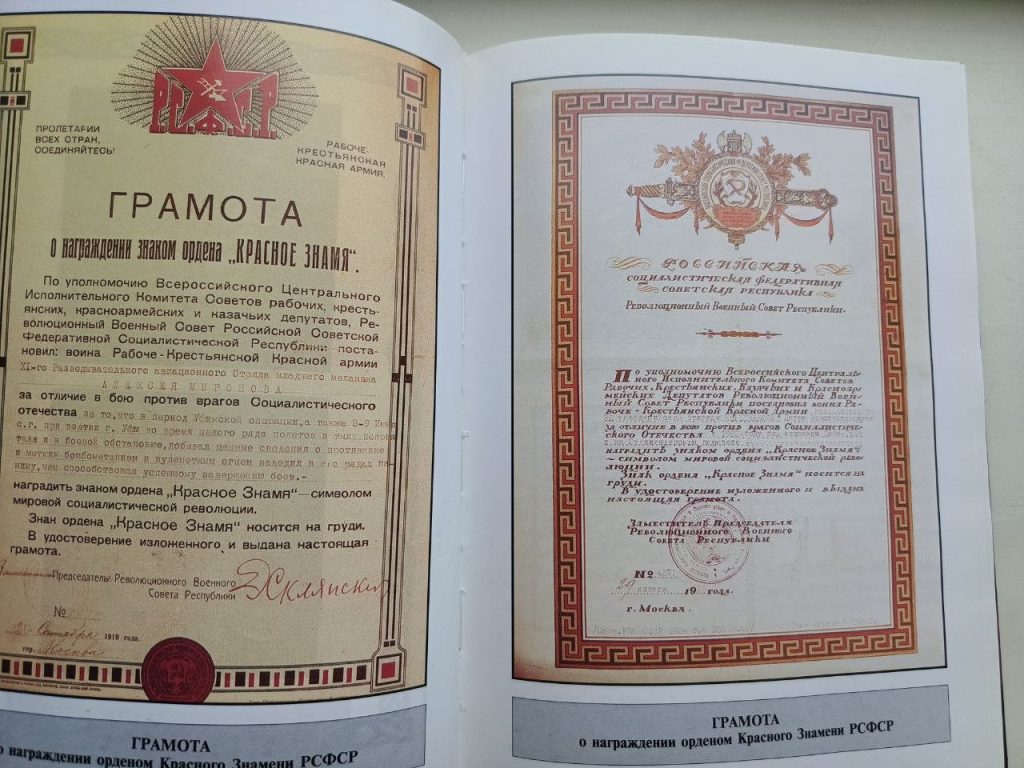 Р.С.Ф.С.Р.
ПРОЛЕТАРИИ
ВСЕХ СТРАН,
СОЕДИНЯЙТЕСЬ!
РАБОЧЕ-
КРЕСТЬЯНСКАЯ
КРАСНАЯ АРМИЯ
ГРАМОТА
о награждении знаком ордена „КРАСНОЕ ЗНАМЯ“.
По уполномочию Всероссийского Центрального
Исполнительного Комитета Советов рабочих, кресть-
янских, красноармейских и казачьих депутатов, Ре-
волюционный Военный Совет Российской Советской
Федеративной Социалистической Республики поста-
новил: воина Рабоче-Крестьянской Красной армии
XI-го Разведывательного авиационного Отряда младшего механика
АЛЕКСЕЯ МИРОНОВА
за отличие в бою против врагов Социалистического
отечества за то, что в период Уфимской операции, а также 8-9 Июня
с.г. при взятии г. Уфы во время целого ряда полетов в тылу неприя-
теля и в боевой обстановке, добывал ценные сведения о противнике
и метким бомбометанием и пулеметным огнем наводил в его рядах па-
нику, чем способствовал успешному завершению боев.-
наградить знаком ордена „Красное Знамя“—символом
мировой социалистической революции.
Знак ордена „Красное Знамя“ носится на груди.
В удостоверение изложенного и выдана настоящая
грамота.
Председатель Революционного Военного
Совета Республики
Склянский
№
Сентября 1919 года.
гор. Москва
ГРАМОТА
о награждении орденом Красного Знамени РСФСР
РОССИЙСКАЯ
СОЦИАЛИСТИЧЕСКАЯ ФЕДЕРАТИВНАЯ
СОВЕТСКАЯ РЕСПУБЛИКА
Революционный Военный Совет Республики.
По уполномочию Всероссийского Централь-
ного Исполнительного Комитета Советов
Рабочих, Крестьянских, Казачьих и Красноар-
мейских Депутатов Революционный Воен-
ный Совет Республики постановил воина Ра-
боче-Крестьянской Красной Армии
за отличие в бою против врагов Социалистиче-
ского Отечества
наградить знаком ордена „Красное Знамя“
—символом мировой социалистической рево-
люции.
Знак ордена „Красное Знамя“ носится на
груди.
В удостоверение изложенного и выдана
настоящая грамота.
Заместитель Председателя
Революционного Военного
Совета Республики
№
29 января 19 года.
г. Москва.
ГРАМОТА
о награждении орденом Красного Знамени РСФСР